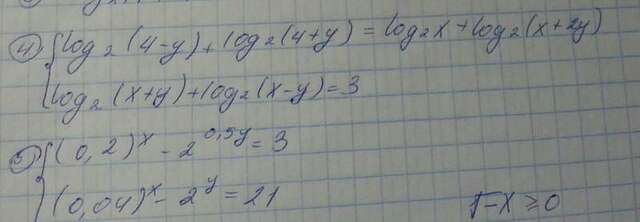 4) log₂(4-y)+log₂(4+y)=log₂x+log₂(x+2y)
log₂(x+y)+log₂(x-y)=3
5) (0,2)ˣ-2^0,5y=3
(0,04)ˣ-2^y=21
√-x ≥0